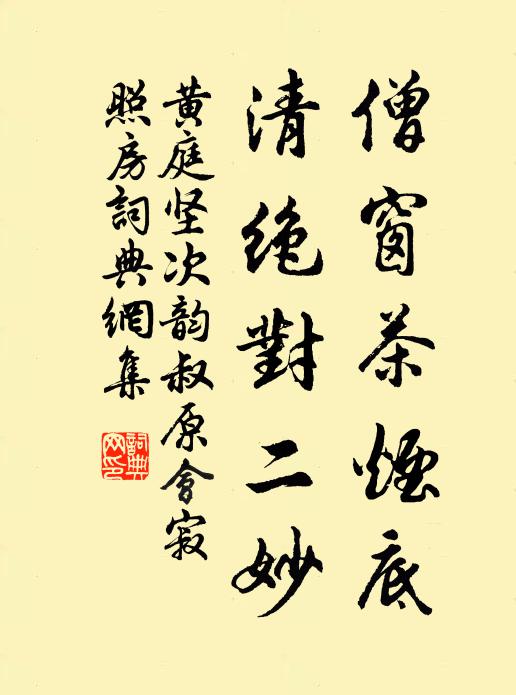 僧窗茶煙底
清絶對二妙
黄庭坚次韵叔原會寂
照房詞典網集
詞典網印